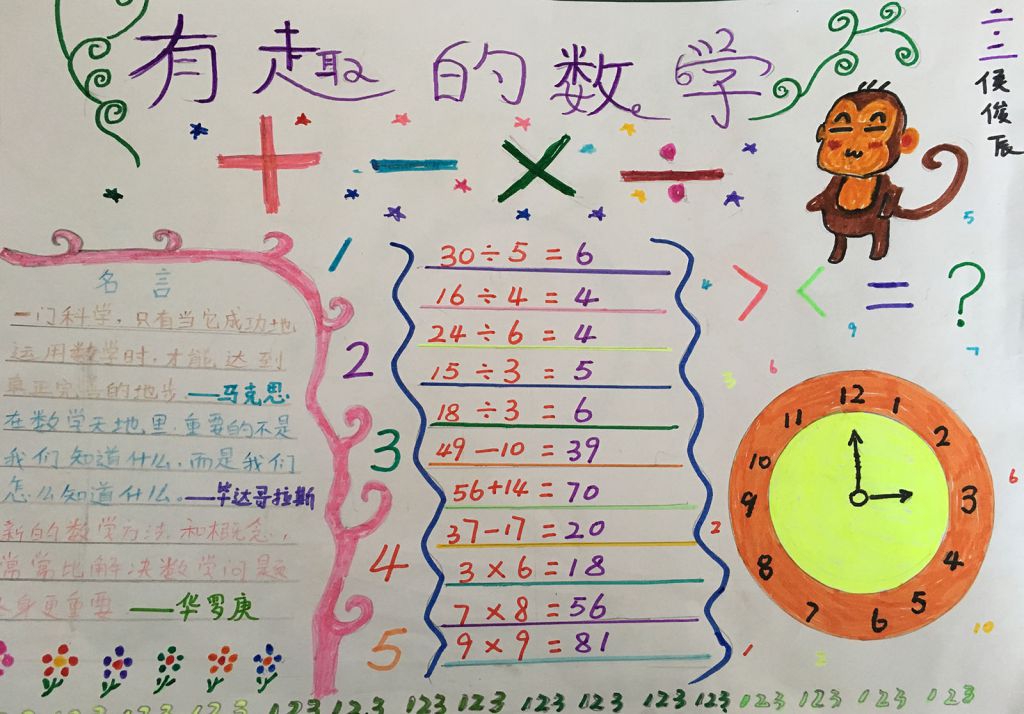 有趣的数学
二.二
侯俊辰
+ − × ÷
名言
一门科学，只有当它成功地
运用数学时，才能达到
真正完善的地步——马克思
在数学天地里，重要的不是
我们知道什么，而是我们
怎么知道什么。——毕达哥拉斯
新的数学方法和概念，
常常比解决数学问题
身更重要——华罗庚
1
2
3
4
5
30÷5=6
16÷4=4
24÷6=4
15÷3=5
18÷3=6
49-10=39
56+14=70
37-17=20
3×6=18
7×8=56
9×9=81
> < = ?
5
4
9
7
3
6
6
2
1
2
10
12
1
2
3
4
5
6
7
8
9
10
11
123 123 123 123 123 123 123 123 123 123 123 123 123 123